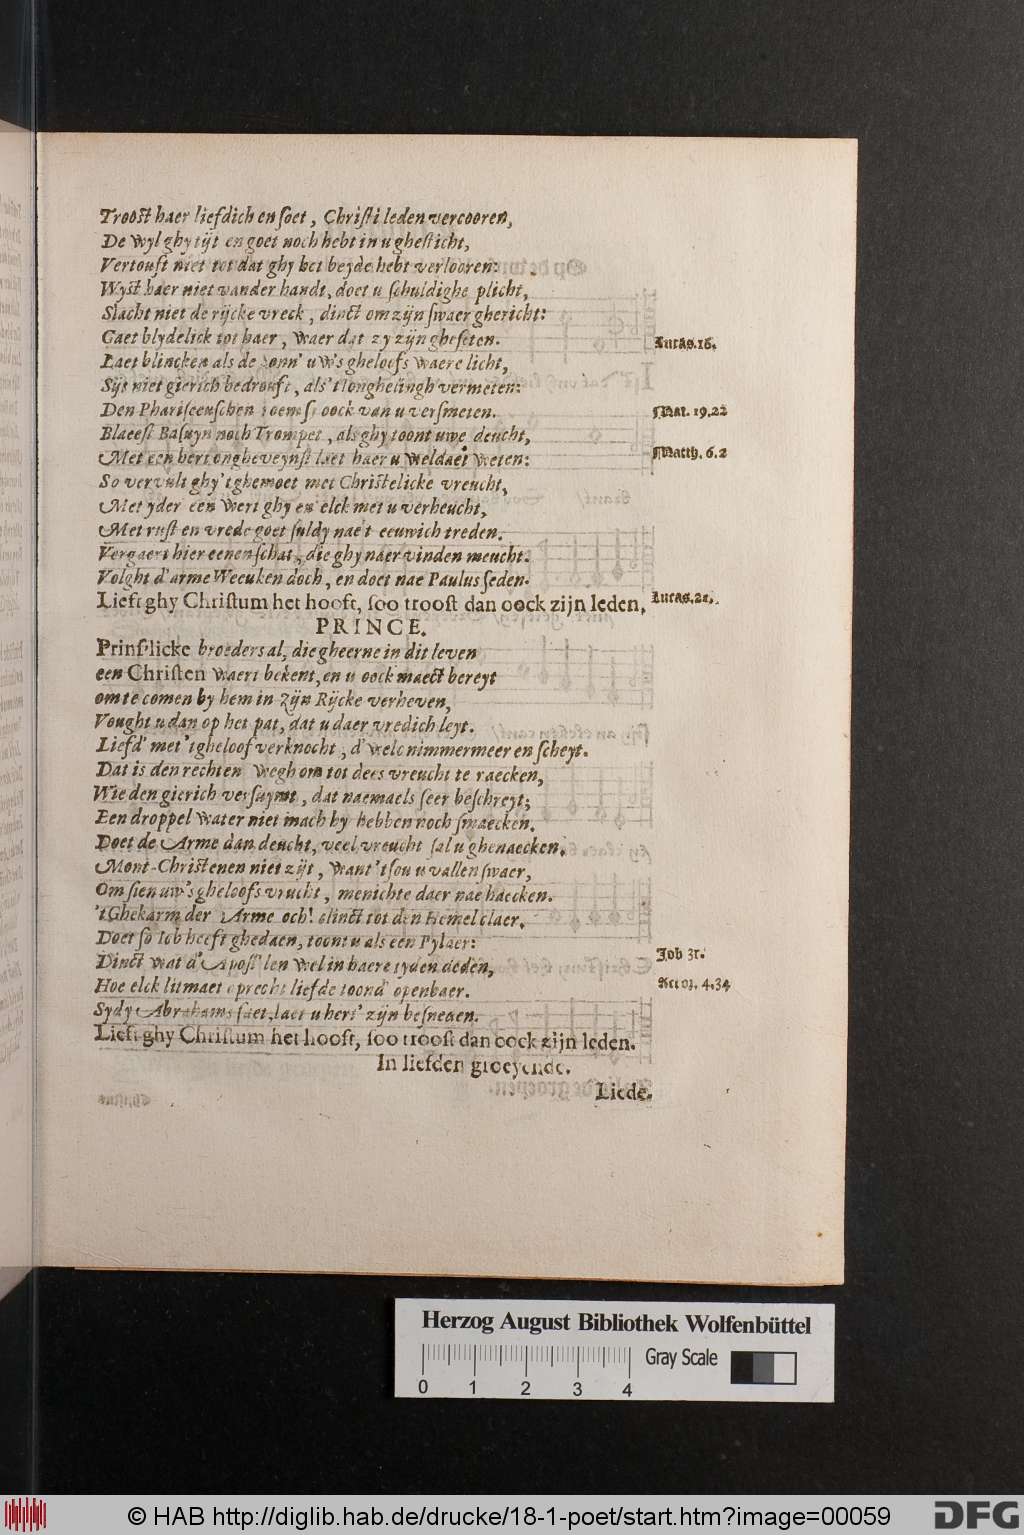 Troost haer liefdich en soet, Christi leden vercooren,
De wyl ghy tijt en goet noch hebt in u ghesticht,
Vertouft niet tot dat ghy het beyde hebt verlooren:
Wyst haer niet vander handt, doet u schuldighe plicht,
Slacht niet de rijcke vreck, dinct om zijn swaer ghericht:
Lucas.16.
Gaet blydelick tot haer, waer dat zy zijn gheseten.
Laet blincken als de sonn' uw's gheloofs waere licht,
Sijt niet gierich bedrouft, als 't Iongheling vermeten:
Mat. 19.22
Den Phariseenschen roem sy oock van u versmeten.
Blaeest Basuyn noch Trompet, als ghy toont uwe deucht,
Matth. 6.2
Met een hert ongheveynst laet haer u weldaet weten:
So vervult ghy 't ghemoet met Christelicke vreucht,
Met yder een wert ghy en elck met u verheucht,
Met rust en vrede goet suldy nae 't eeuwich treden.
Vergaert hier eenen schat, die ghy naer vinden meucht.
Volght d'arme Weeuken doch, en doet nae Paulus seden.
Lucas.21.
Lieft ghy Christum het hooft, soo troost dan oock zijn leden,
PRINCE.
Prinslicke broeders al, die gheerne in dit leven
een Christen waert bekent, en u oock maect bereyt
om te comen by hem in zijn Rijcke verheven,
Vought u dan op het pat, dat u daer vredich leyt.
Liefd' met 'tgheloof verknocht, d'welc nimmermeer en scheyt.
Dat is den rechten wegh om tot dees vreucht te raecken,
Wie den gierich versuymt, dat naemaels seer beschreyt;
Een droppel water niet mach hy hebben noch smaecken.
Doet de Arme dan deucht, veel vreucht sal u ghenaecken.
Mont-Christenen niet zijt, want 't sou u vallen swaer,
Om sien uw's gheloofs vrucht, menichte daer nae haecken.
't Ghekarm der Arme och! clinct tot den Hemel claer.
Doet so Iob heeft ghedaen, toont u als een Pylaer:
Job 31.
Dinct wat d'Apost'len wel in haere tyden deden,
Actoz. 4.34
Hoe elck litmaet oprecht liefde toond' openbaer.
Sydy Abrahams saet, laet u hert' zijn besneden.
Lieft ghy Christum het hooft, soo troost dan oock zijn leden.
In liefden groeyende.
Liede.
Herzog August Bibliothek Wolfenbüttel
Gray Scale
0 1 2 3 4
© HAB http://diglib.hab.de/drucke/18-1-poet/start.htm?image=00059
DFG